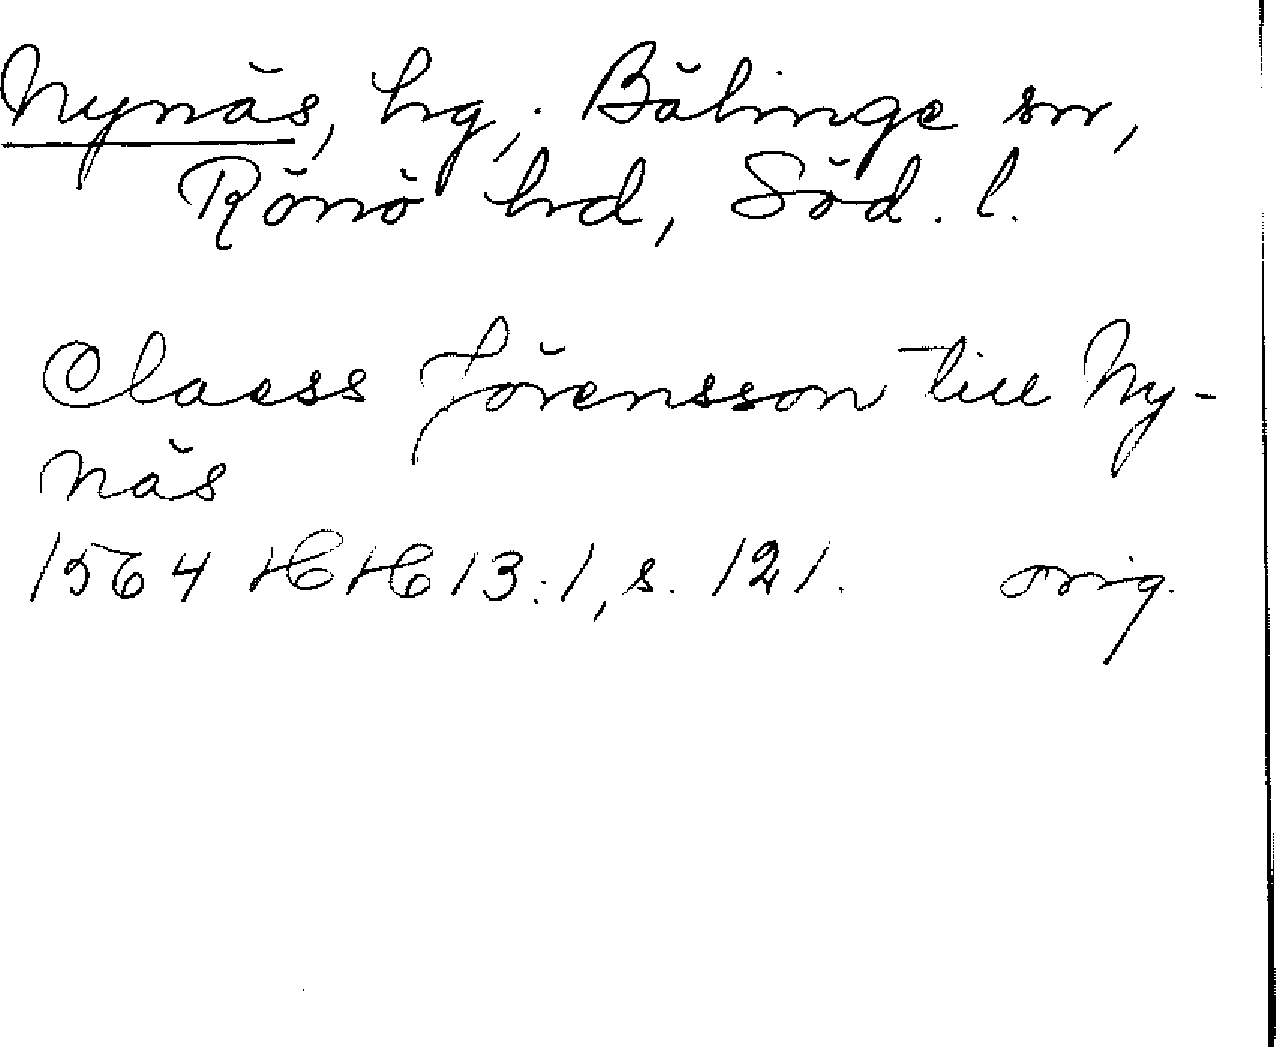 Nynäs, hg, Bälinge sn,
Rönö hd, Söd. l.
Claess Jörensson till Ny-
näs
1564 HH 13:1, s. 121. orig.